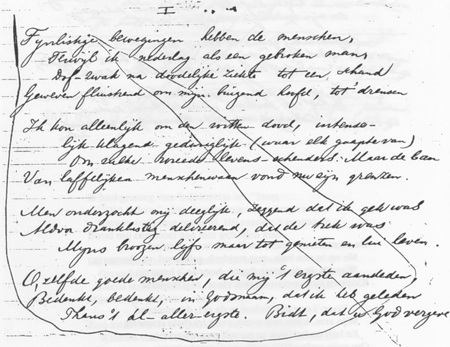 I
bewegingen hebben de menschen,
Terwijl ik nederlag als een gebroken man,
Dof-zwak na doodelijke ziekte tot een schand
Geweven fluistrend om mijn buigend hoofd, tot
Ik kon alleenlijk om den dood, intense-
lijk klagend, gedurigljk (waar elk gaapte van)
Om zulke levens-schenders. Maar de ban
Van laffelijken menschenwaan vond nu zijn grenzen.
Men onderzocht mij deeglijk, zeggend dat ik gek was
delireerend, dat de trek was
Mijns broozen lijfs maar tot genieten en lui leven.
O, zelfde goede menschen, die mij 't ergste aandeden,
Bedenkt, bedenkt, in Godsnaam, dat ik heb geleden
Thans 't al-aller-ergste. Bidt, dat u God vergeve